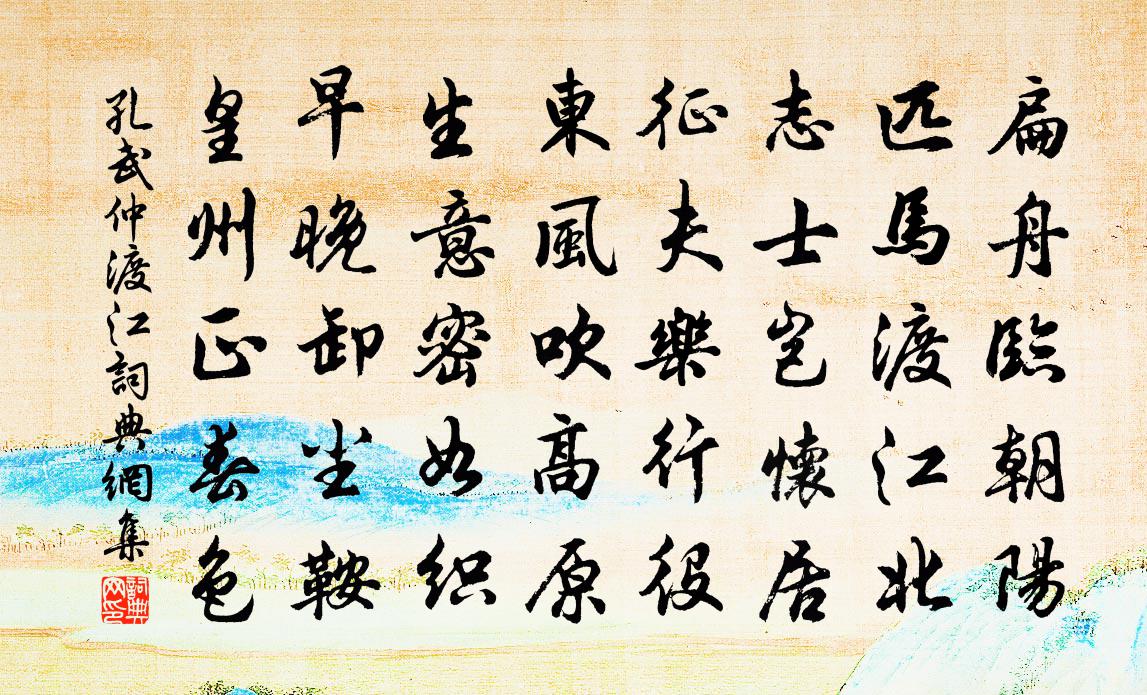 扁舟臨朝陽
匹馬渡江北
志士豈懷居
征夫樂行役
東風吹高原
生意密如织
早晚卸尘鞍
皇州正春色
孔武仲渡江詞典網集
詞典網印